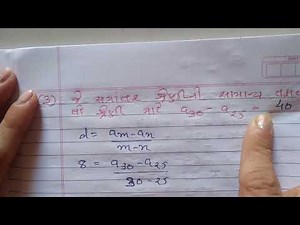 (3) જે સમાંતર શ્રેણીની સામાન્ય
શ્રેણી માટે a₃₀ - a₂₅ = 40
d = aₘ - aₙ / m - n
8 = a₃₀ - a₂₅ / 30 - 25